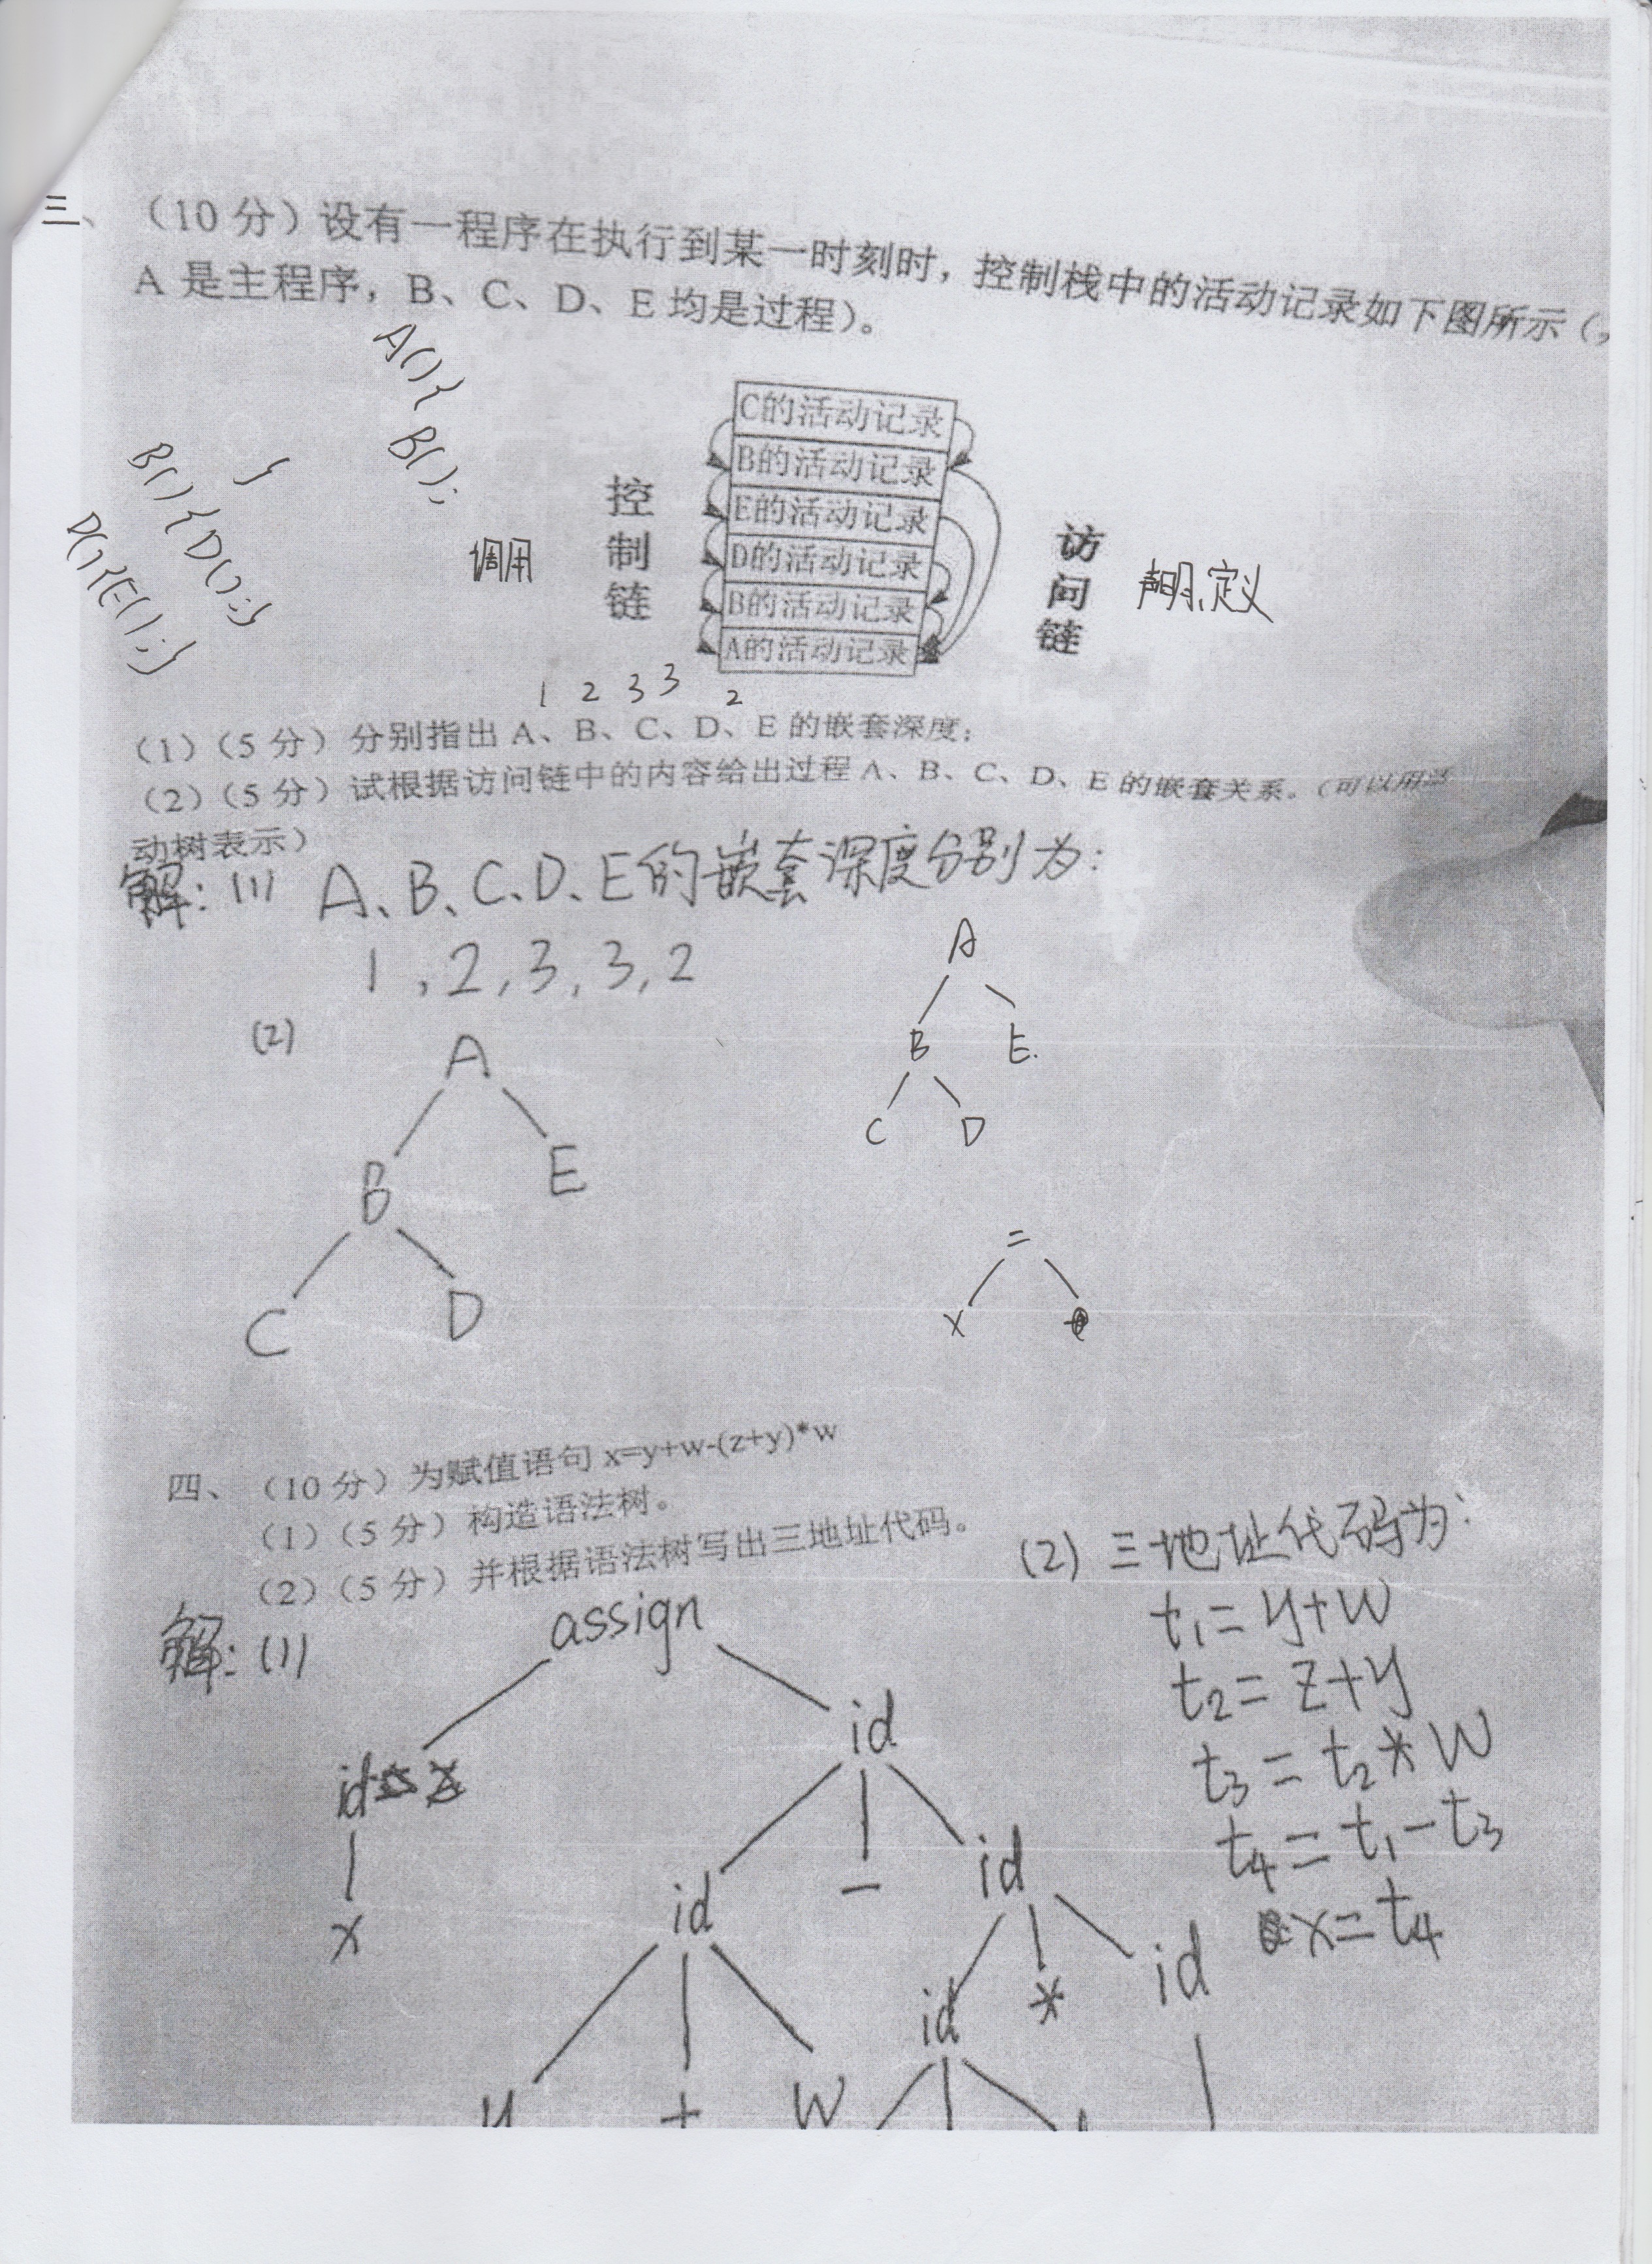 三、（10 分）设有一程序在执行到某一时刻时，控制栈中的活动记录如下图所示（
A 是主程序，B、C、D、E 均是过程）。
A(){
B();
}
B(){D();}
D(){E();}
调用
控制链
C的活动记录
B的活动记录
E的活动记录
D的活动记录
B的活动记录
A的活动记录
访问链
声明、定义
1 2 3 3 2
（1）（5 分）分别指出 A、B、C、D、E 的嵌套深度；
（2）（5 分）试根据访问链中的内容给出过程 A、B、C、D、E 的嵌套关系。（可以用
动树表示）
解：(1) A、B、C、D、E的嵌套深度分别为：
1，2，3，3，2
(2)
A
B E
C D
A
B E.
C D
=
x
四、（10 分）为赋值语句 x=y+w-(z+y)*w
（1）（5 分）构造语法树。
（2）（5 分）并根据语法树写出三地址代码。
解：(1)
assign
id id
x id - id
id * id
y + w
(2) 三地址代码为：
t1 = y+w
t2 = z+y
t3 = t2 * w
t4 = t1 - t3
x = t4